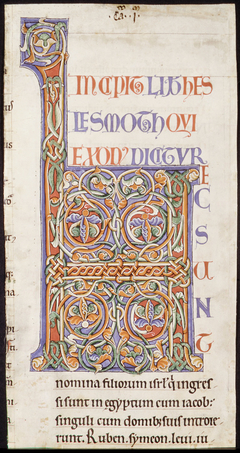 INCIPIT LIB HES
LESMOTH QVI
EXOD' DICITVR
HEC
SUNT
nomina filiorum isrl' q' ingres
si sunt in egyptum cum iacob:
singuli cum domib; suis introie
runt. Ruben. symeon. leui. iu